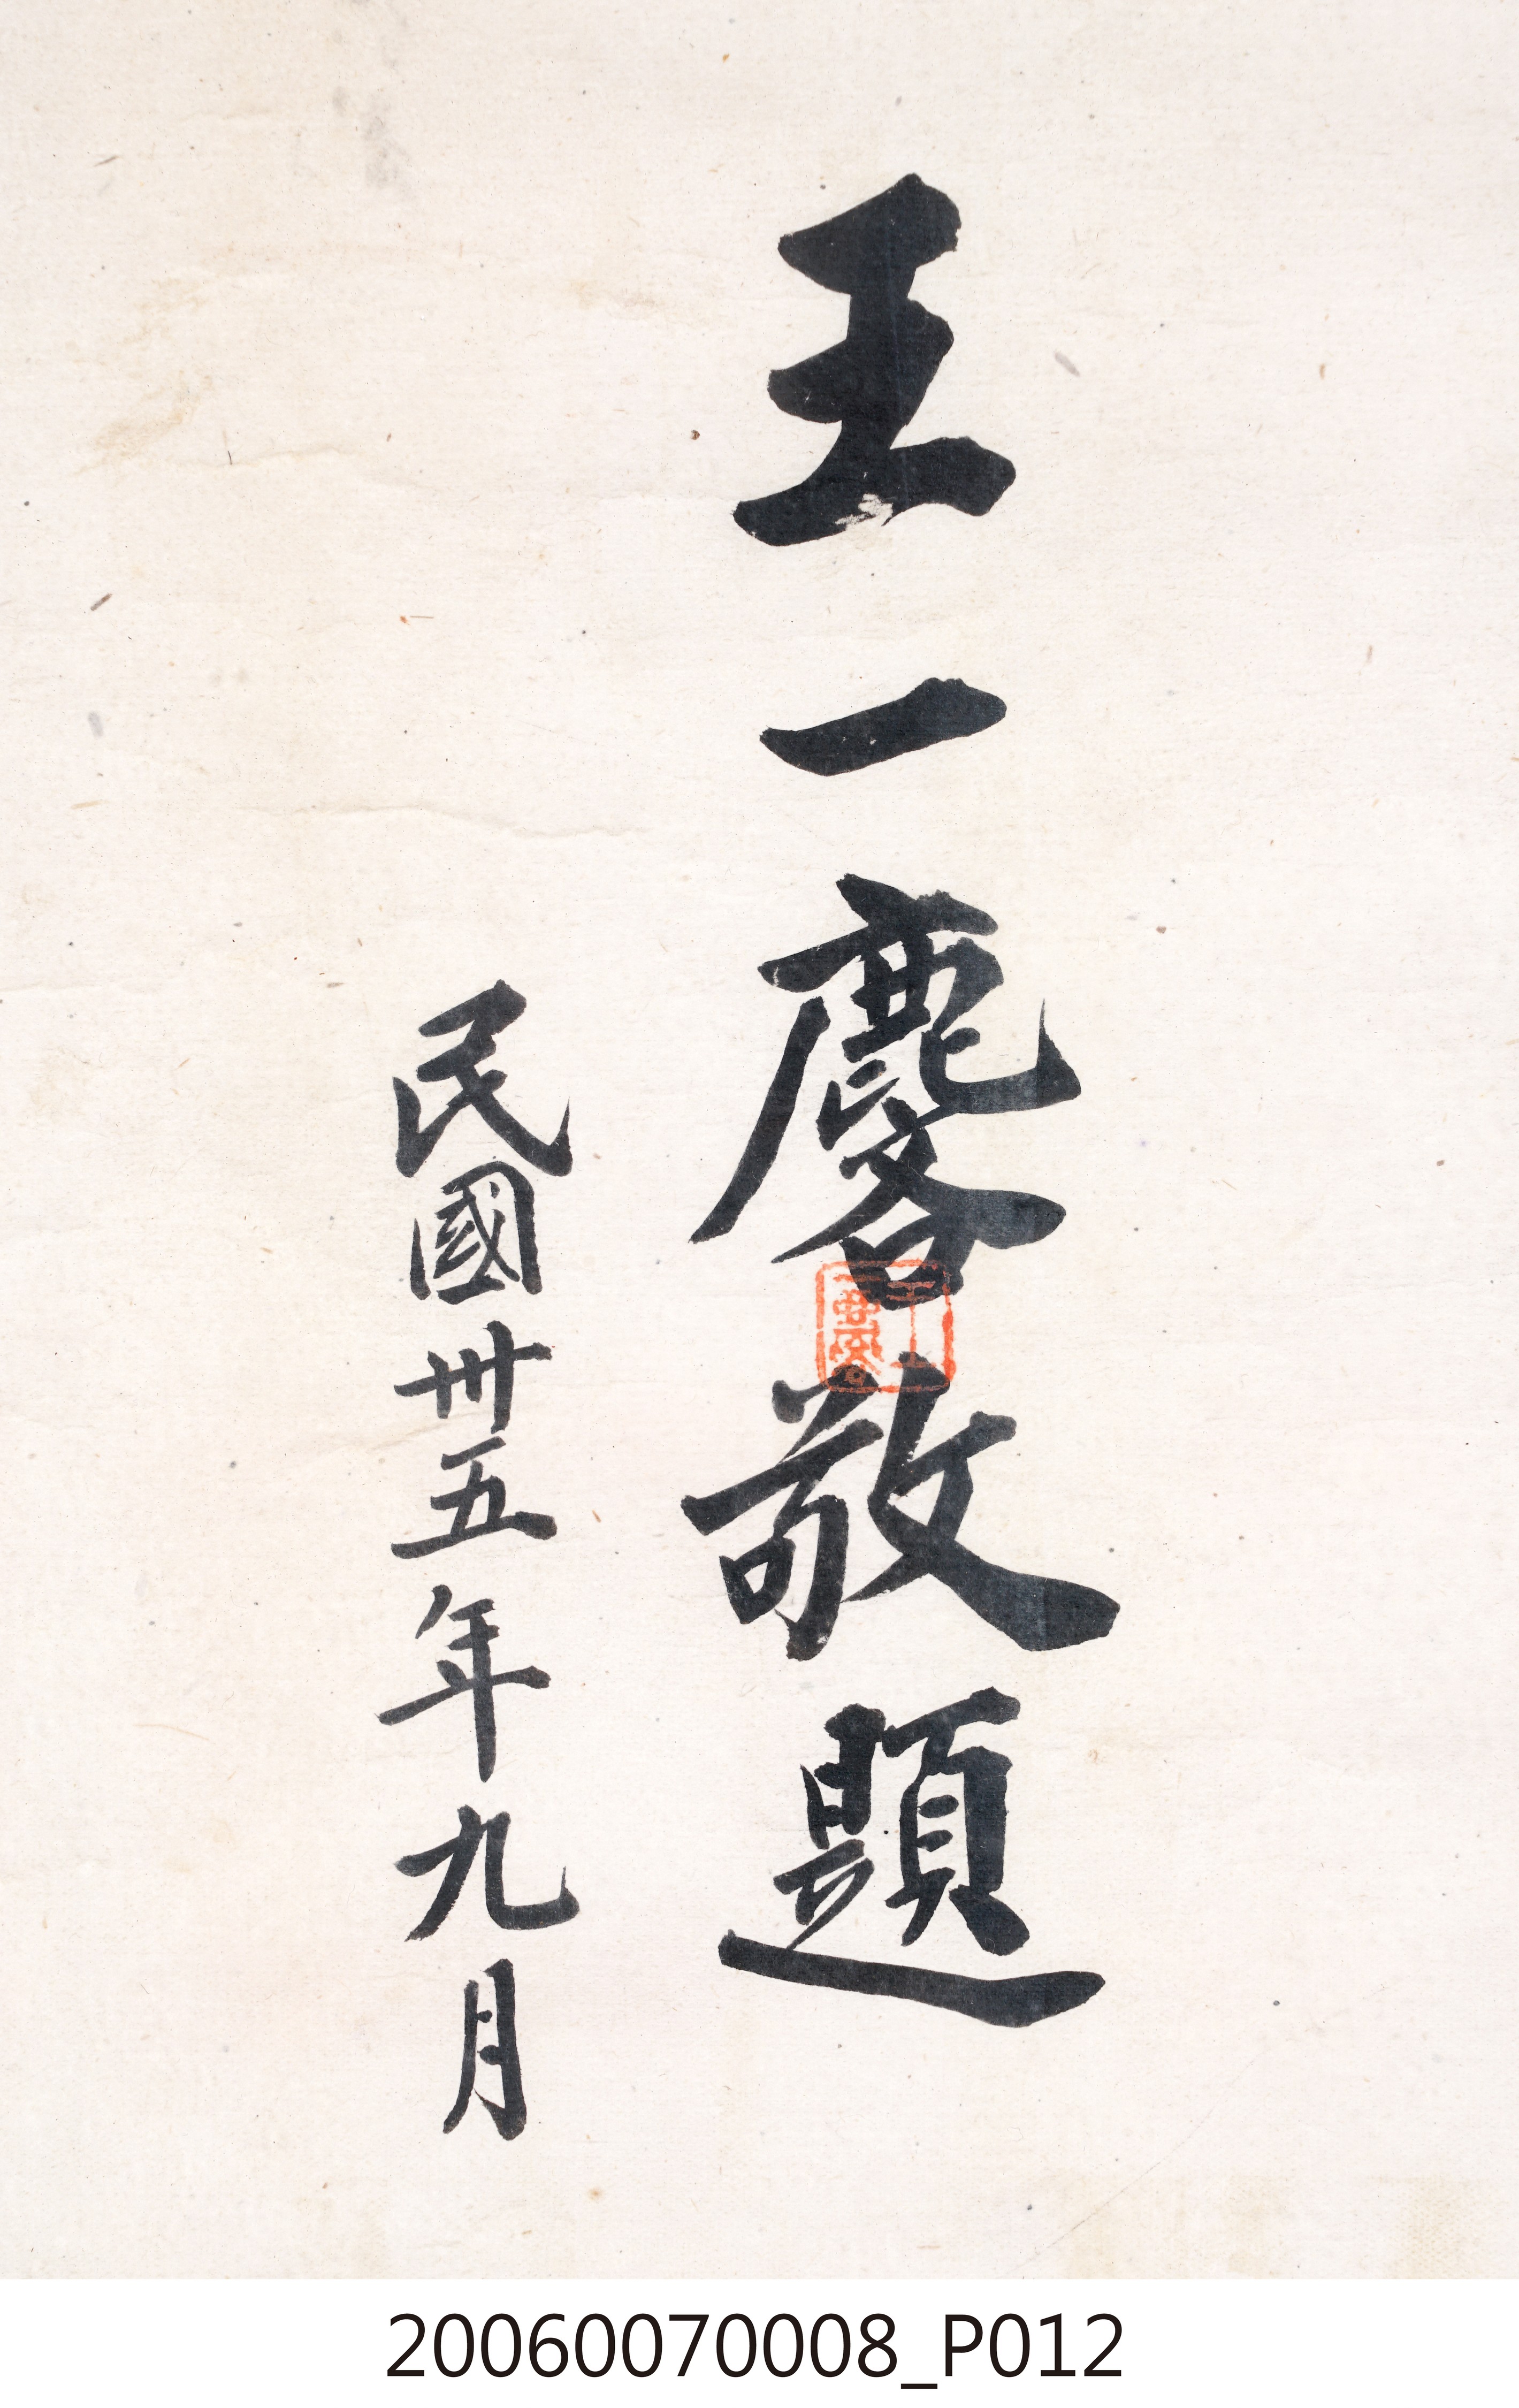 王一麐敬題
民國卅五年九月
王一麐
20060070008_P012